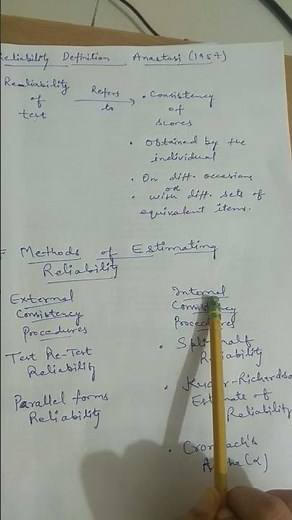 Reliability Definition Anastasi (1957)
Realiability Refers • Consistency
of to of
test scores
• Obtained by the
individual
• On diff. occasions
or
• with diff. sets of
equivalent items.
= Methods of Estimating
Reliability
External
Consistency
Procedures
Test Re-Test
Reliability
Parallel forms
Reliability
Internal
Consistency
Procedures
• Split-half
Reliability
• Kuder-Richardson
Estimate of
Reliability
• Cronbach's
(α)